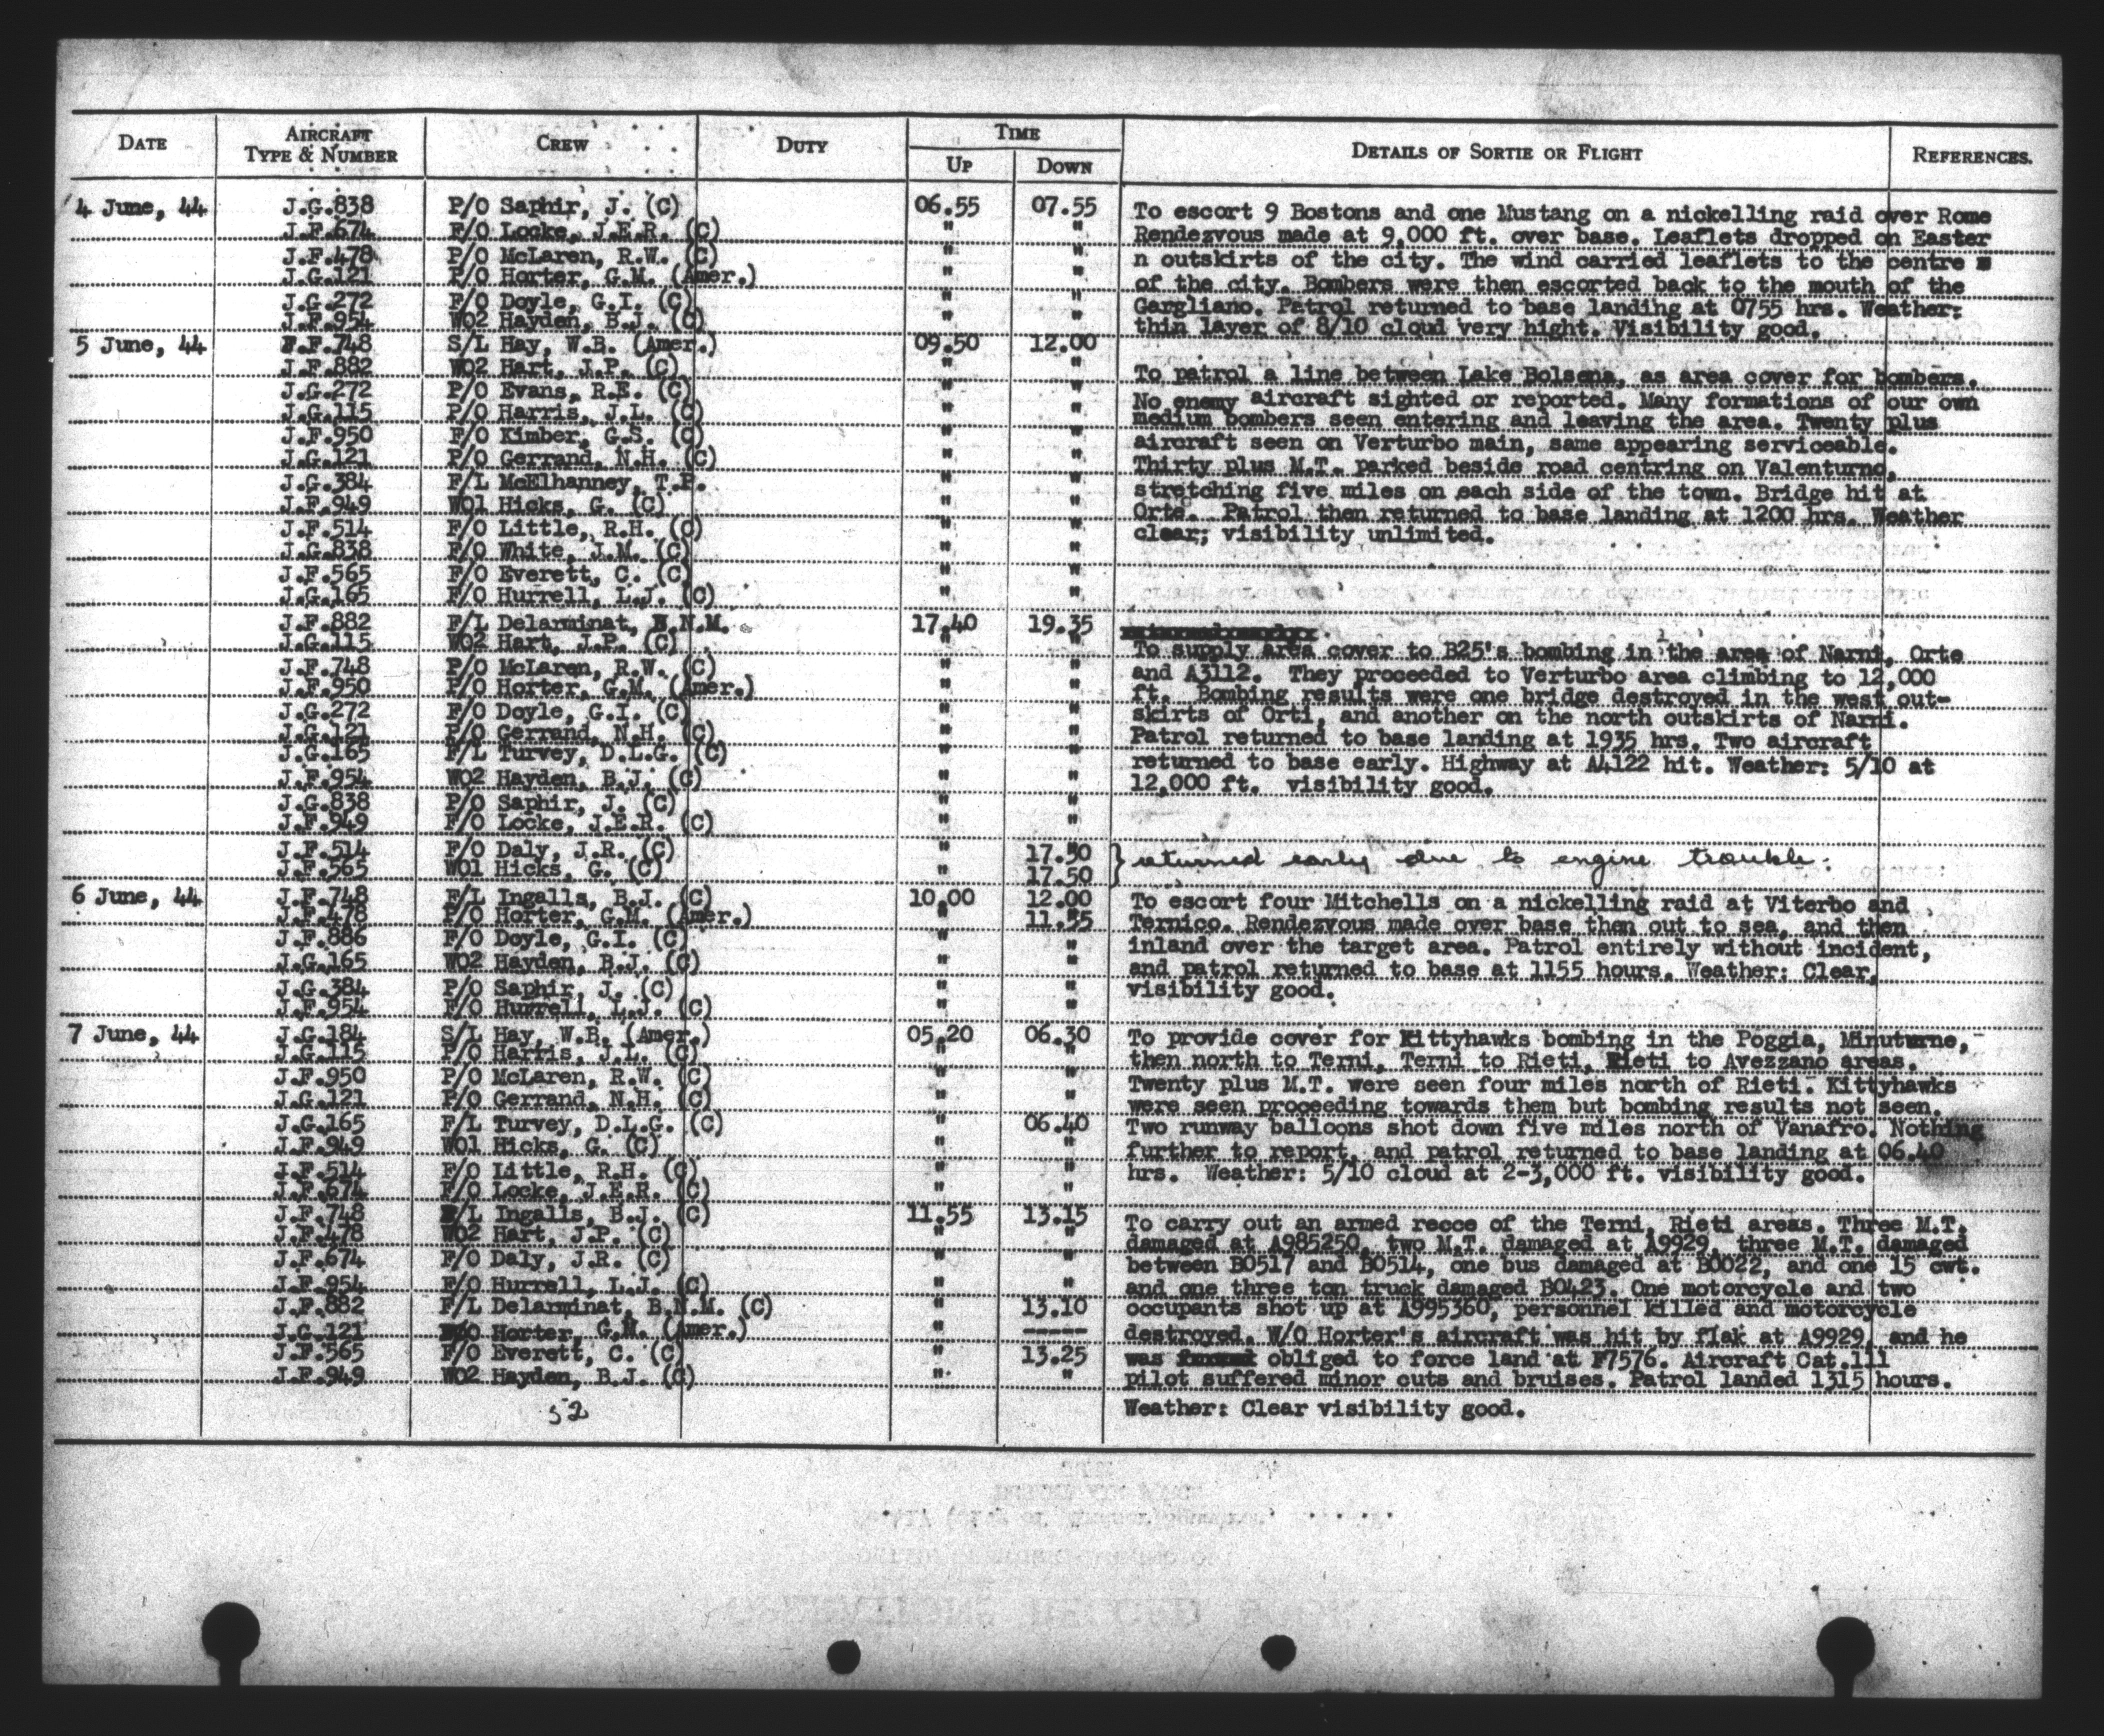 DATE AIRCRAFT TYPE & NUMBER CREW DUTY TIME UP DOWN DETAILS OF SORTIE OR FLIGHT REFERENCES.
4 June, 44 J.G.838 P/O Saphir, J. (C) 06.55 07.55
J.F.674 F/O Locke, J.E.R. (C) " "
J.F.478 P/O McLaren, R.W. (C) " "
J.G.121 P/O Horter, G.M. (Amer.) " "
J.G.272 F/O Doyle, G.I. (C) " "
J.F.954 WO2 Hayden, B.J. (C) " "
To escort 9 Bostons and one Mustang on a nickelling raid over Rome
Rendezvous made at 9,000 ft. over base. Leaflets dropped on Easter
n outskirts of the city. The wind carried leaflets to the centre
of the city. Bombers were then escorted back to the mouth of the
Gargliano. Patrol returned to base landing at 0755 hrs. Weather:
thin layer of 8/10 cloud very hight. Visibility good.
5 June, 44 F.F.748 S/L Hay, W.B. (Amer.) 09.50 12.00
J.F.882 WO2 Hart, J.P. (C) " "
J.G.272 P/O Evans, R.E. (C) " "
J.G.115 P/O Harris, J.L. (C) " "
J.F.950 F/O Kimber, G.S. (C) " "
J.G.121 P/O Gerrand, N.H. (C) " "
J.G.384 F/L McElhanney, T.P. " "
J.F.949 WO1 Hicks, G. (C) " "
J.F.514 F/O Little, R.H. (C) " "
J.G.838 F/O White, J.M. (C) " "
J.F.565 F/O Everett, C. (C) " "
J.G.165 F/O Hurrell, L.J. (C) " "
To patrol a line between Lake Bolsena, as area cover for bombers.
No enemy aircraft sighted or reported. Many formations of our own
medium bombers seen entering and leaving the area. Twenty plus
aircraft seen on Verturbo main, same appearing serviceable.
Thirty plus M.T. parked beside road centring on Valenturno,
stretching five miles on each side of the town. Bridge hit at
Orte. Patrol then returned to base landing at 1200 hrs. Weather
clear; visibility unlimited.
J.F.882 F/L Delarminat, B.N.M. 17.40 19.35
J.G.115 WO2 Hart, J.P. (C) " "
J.F.748 P/O McLaren, R.W. (C) " "
J.F.950 P/O Horter, G.M. (Amer.) " "
J.G.272 F/O Doyle, G.I. (C) " "
J.G.121 P/O Gerrand, N.H. (C) " "
J.G.165 F/L Turvey, D.L.G. (C) " "
J.F.954 WO2 Hayden, B.J. (C) " "
J.G.838 P/O Saphir, J. (C) " "
J.F.949 F/O Locke, J.E.R. (C) " "
To supply area cover to B25's bombing in the area of Narni, Orte
and A3112. They proceeded to Verturbo area climbing to 12,000
ft. Bombing results were one bridge destroyed in the west out-
skirts of Orti, and another on the north outskirts of Narni.
Patrol returned to base landing at 1935 hrs. Two aircraft
returned to base early. Highway at A4122 hit. Weather: 5/10 at
12,000 ft. visibility good.
J.F.514 F/O Daly, J.R. (C) " 17.50
J.F.565 WO1 Hicks, G. (C) " 17.50
} returned early due to engine trouble.
6 June, 44 J.F.748 F/L Ingalls, B.J. (C) 10.00 12.00
J.F.478 P/O Horter, G.M. (Amer.) " 11.55
J.F.886 F/O Doyle, G.I. (C) " "
J.G.165 WO2 Hayden, B.J. (C) " "
J.G.384 P/O Saphir, J. (C) " "
J.F.954 F/O Hurrell, L.J. (C) " "
To escort four Mitchells on a nickelling raid at Viterbo and
Ternico. Rendezvous made over base then out to sea, and then
inland over the target area. Patrol entirely without incident,
and patrol returned to base at 1155 hours. Weather: Clear,
visibility good.
7 June, 44 J.G.184 S/L Hay, W.B. (Amer.) 05.20 06.30
J.G.115 P/O Harris, J.L. (C) " "
J.F.950 P/O McLaren, R.W. (C) " "
J.G.121 P/O Gerrand, N.H. (C) " "
J.G.165 F/L Turvey, D.L.G. (C) " 06.40
J.F.949 WO1 Hicks, G. (C) " "
J.F.514 F/O Little, R.H. (C) " "
J.F.674 F/O Locke, J.E.R. (C) " "
To provide cover for Kittyhawks bombing in the Poggia, Minuturne,
then north to Terni, Terni to Rieti, Rieti to Avezzano areas.
Twenty plus M.T. were seen four miles north of Rieti. Kittyhawks
were seen proceeding towards them but bombing results not seen.
Two runway balloons shot down five miles north of Vanafro. Nothing
further to report, and patrol returned to base landing at 06.40
hrs. Weather: 5/10 cloud at 2-3,000 ft. visibility good.
J.F.748 F/L Ingalls, B.J. (C) 11.55 13.15
J.F.478 WO2 Hart, J.P. (C) " "
J.F.674 F/O Daly, J.R. (C) " "
J.F.954 F/O Hurrell, L.J. (C) " "
J.F.882 F/L Delarminat, B.N.M. (C) " 13.10
J.G.121 Horter, G.M. (Amer.) " -----
J.F.565 F/O Everett, C. (C) " 13.25
J.F.949 WO2 Hayden, B.J. (C) " "
To carry out an armed recce of the Terni, Rieti areas. Three M.T.
damaged at A985250, two M.T. damaged at A9929, three M.T. damaged
between B0517 and B0514, one bus damaged at B0022, and one 15 cwt.
and one three ton truck damaged B0423. One motorcycle and two
occupants shot up at A995360, personnel killed and motorcycle
destroyed. W/O Horter's aircraft was hit by flak at A9929, and he
was obliged to force land at F7576. Aircraft Cat.111
pilot suffered minor cuts and bruises. Patrol landed 1315 hours.
Weather: Clear visibility good.
52